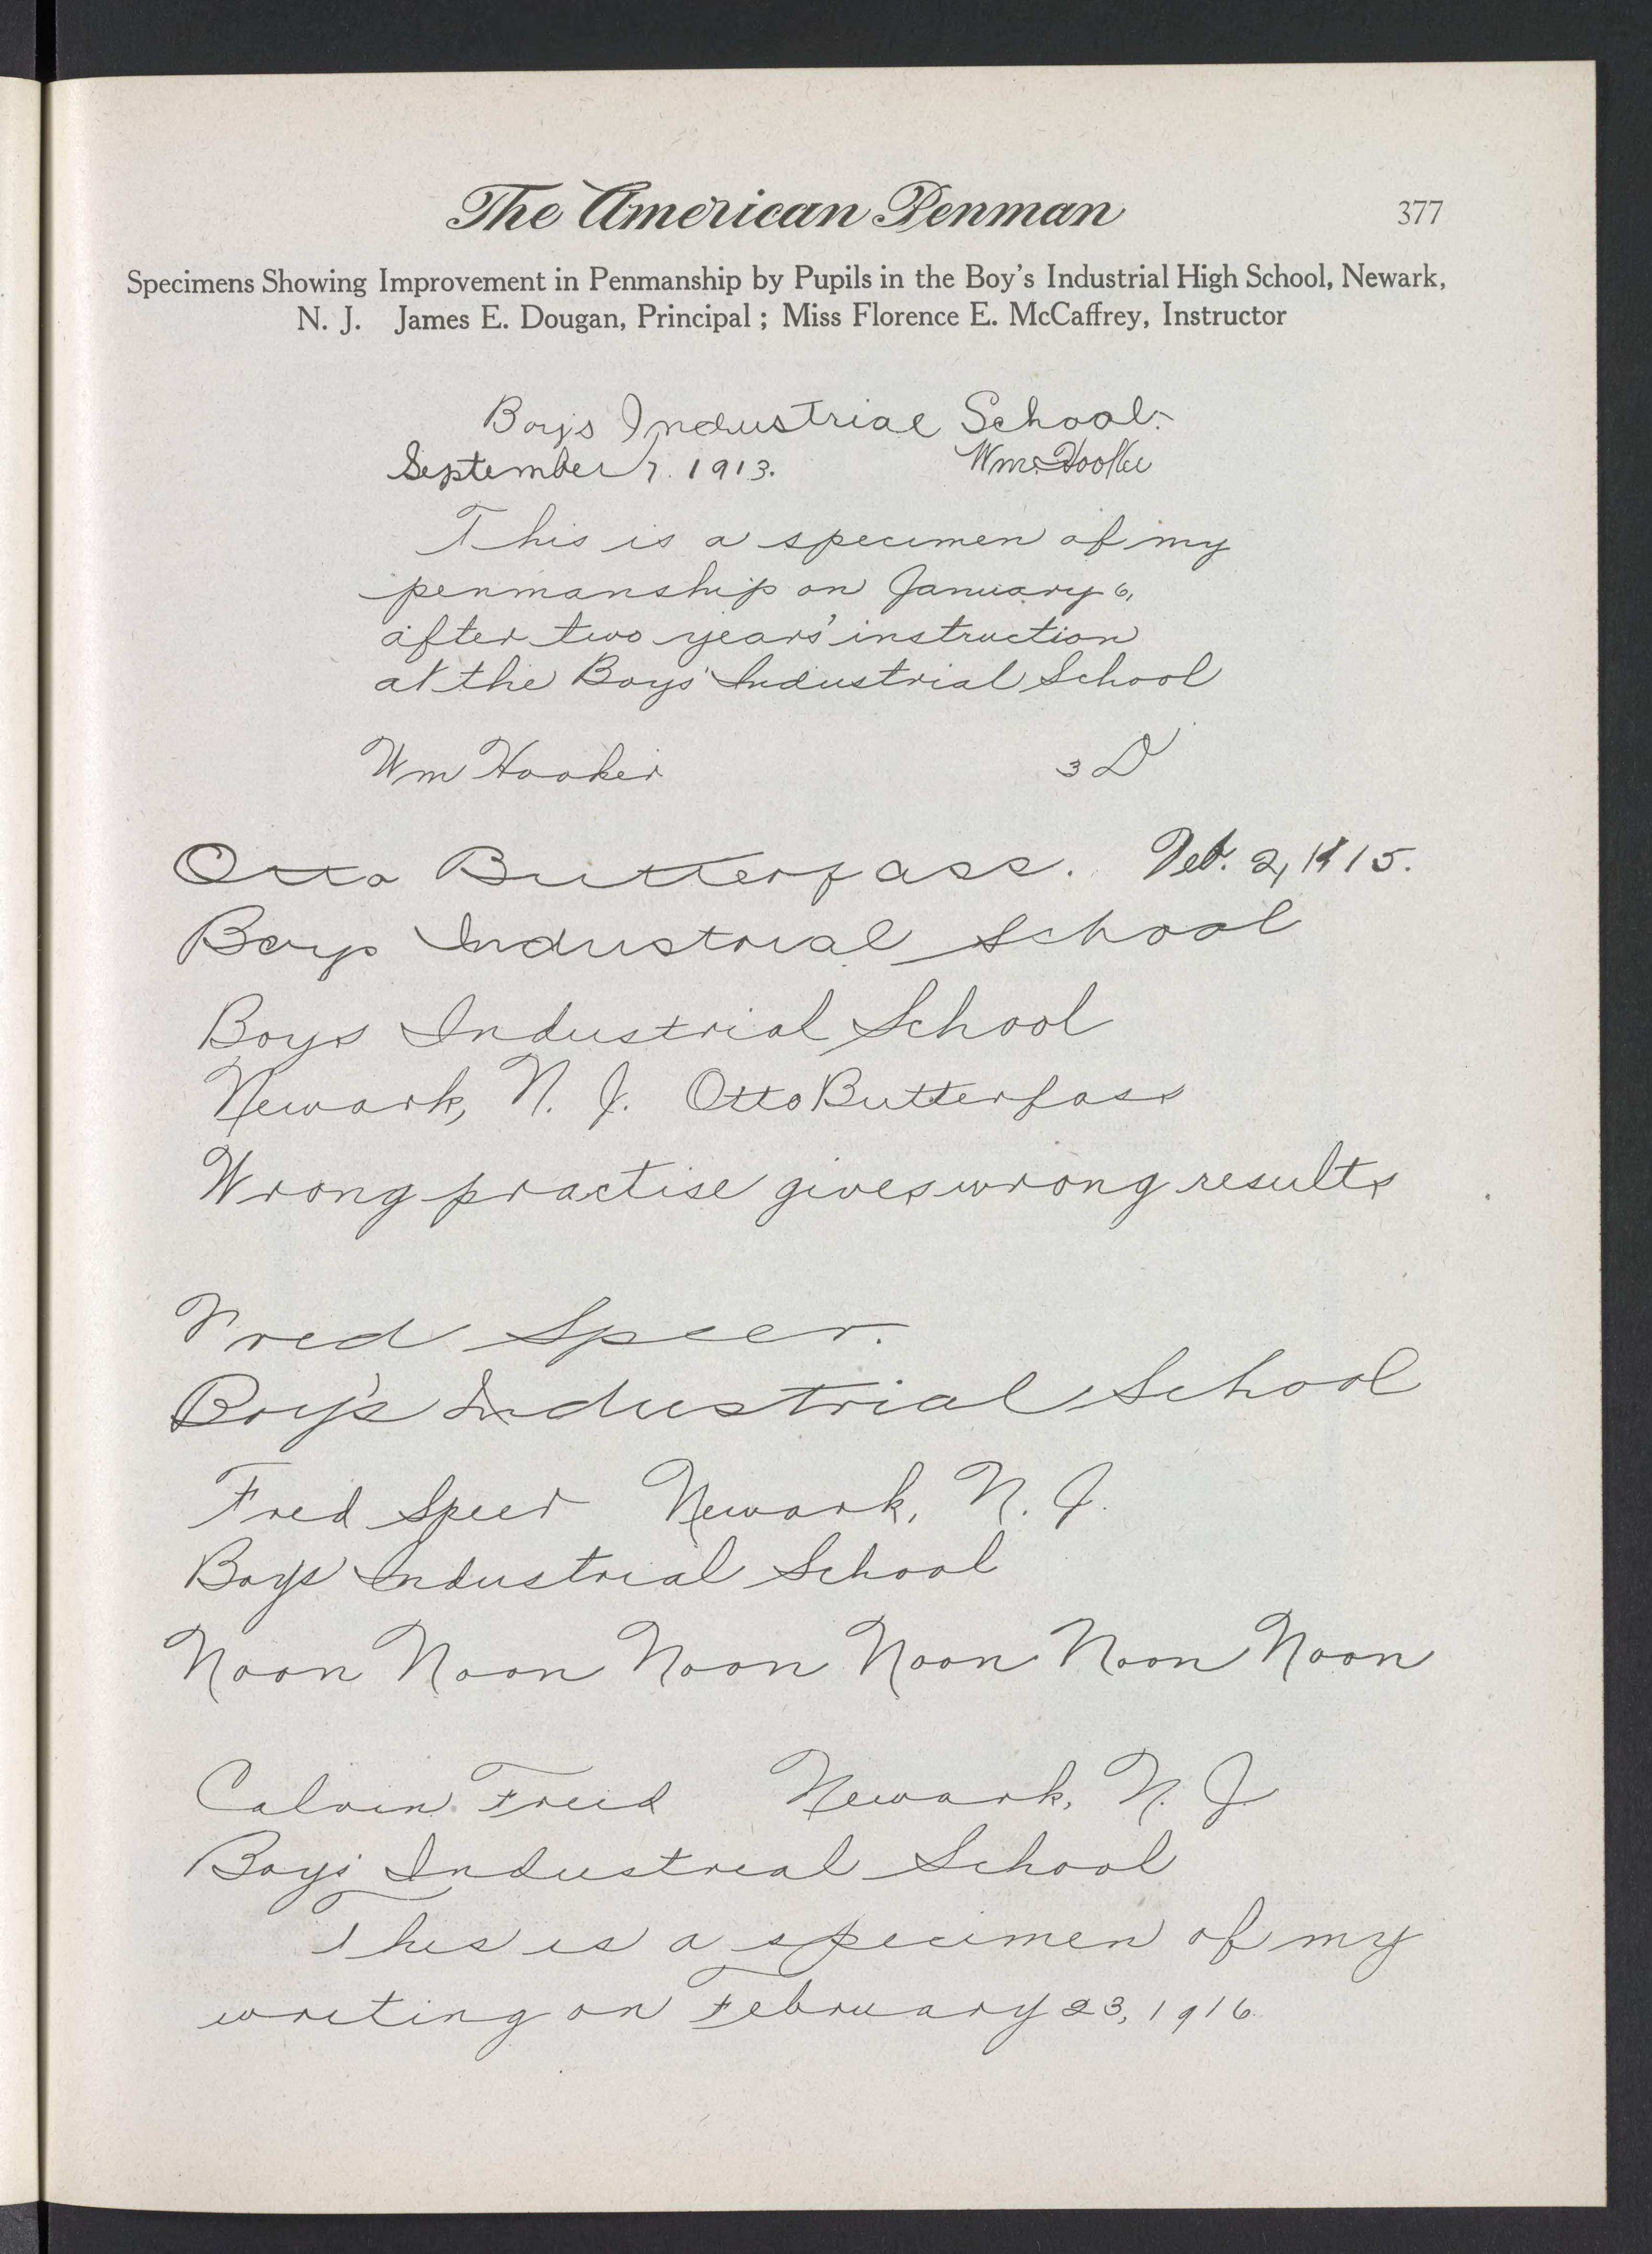 The American Penman 377
Specimens Showing Improvement in Penmanship by Pupils in the Boy's Industrial High School, Newark,
N. J. James E. Dougan, Principal ; Miss Florence E. McCaffrey, Instructor
Boy's Industrial School.
September 7. 1913. Wm. Hooker
This is a specimen of my
penmanship on January 6,
after two years' instruction
at the Boys' Industrial School
Wm Hooker 3 D
Otto Butterfass. Feb. 2, 1915.
Boys Industrial School
Boys Industrial School
Newark, N. J. Otto Butterfass
Wrong practise gives wrong results
Fred Speer.
Boy's Industrial School
Fred Speer Newark, N. J.
Boys' Industrial School
Noon Noon Noon Noon Noon Noon
Calvin Freid Newark, N. J.
Boys' Industrial School
This is a specimen of my
writing on February 23, 1916.